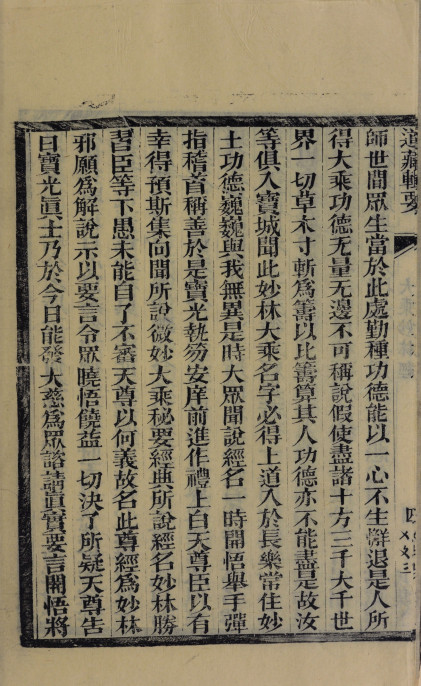 道藏輯要
師世間眾生當於此處勤種功德能以一心不生懈退是人所
得大乘功德无量无邊不可稱說假使盡諸十方三千大千世
界一切草木寸斬為籌以比籌算其人功德亦不能盡是故汝
等俱入寶城聞此妙林大乘名字必得上道入於長樂常住妙
土功德巍巍與我無異是時大眾聞說經名一時開悟舉手彈
指稽首稱善於是寶光執笏安庠前進作禮上白天尊臣以有
幸得預斯集向聞所說微妙大乘秘要經典所說經名妙林勝
習臣等下愚未能自了不審天尊以何義故名此尊經為妙林
邪願為解說示以要言令眾曉悟饒益一切決了所疑天尊告
曰寶光真士乃於今日能發大慈為眾諮請真實要言開悟將